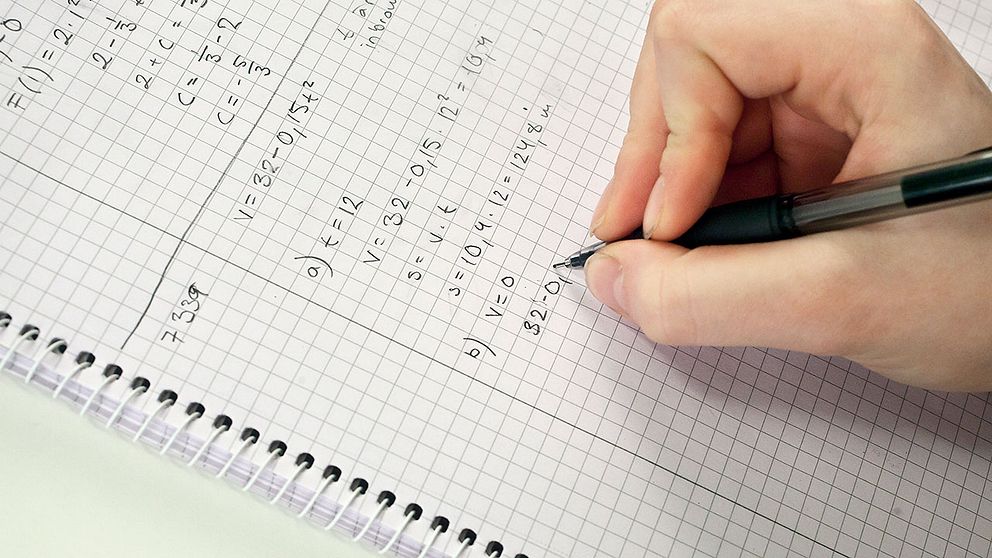 F(1) = 2 · 1
2 - 1/3
2 + C =
C = 1/3 - 2
C = -5/3
7 339
V = 32 - 0,15t²
a) t = 12
V = 32 - 0,15 · 12² = 10,4
s = v · t
s = 10,4 · 12 = 124,8 m
b) V = 0
32 - 0,